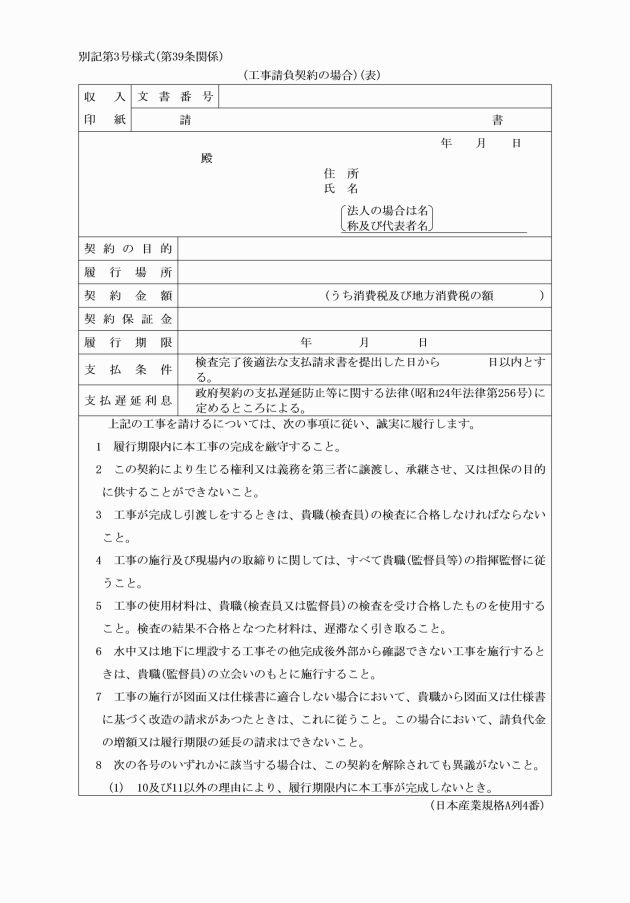 別記第3号様式(第39条関係)
(工事請負契約の場合)(表)
収　入　文書番号
印　紙　請　書
年　月　日
殿
住　所
氏　名
法人の場合は名
称及び代表者名
契約の目的
履行場所
契約金額　(うち消費税及び地方消費税の額　)
契約保証金
履行期限　年　月　日
支払条件　検査完了後適法な支払請求書を提出した日から　日以内とす
る。
支払遅延利息　政府契約の支払遅延防止等に関する法律(昭和24年法律第256号)に
定めるところによる。
上記の工事を請けるについては、次の事項に従い、誠実に履行します。
1　履行期限内に本工事の完成を厳守すること。
2　この契約により生じる権利又は義務を第三者に譲渡し、承継させ、又は担保の目的
に供することができないこと。
3　工事が完成し引渡しをするときは、貴職(検査員)の検査に合格しなければならない
こと。
4　工事の施行及び現場内の取締りに関しては、すべて貴職(監督員等)の指揮監督に従
うこと。
5　工事の使用材料は、貴職(検査員又は監督員)の検査を受け合格したものを使用する
こと。検査の結果不合格となつた材料は、遅滞なく引き取ること。
6　水中又は地下に埋設する工事その他完成後外部から確認できない工事を施行すると
きは、貴職(監督員)の立会いのもとに施行すること。
7　工事の施行が図面又は仕様書に適合しない場合において、貴職から図面又は仕様書
に基づく改造の請求があつたときは、これに従うこと。この場合において、請負代金
の増額又は履行期限の延長の請求はできないこと。
8　次の各号のいずれかに該当する場合は、この契約を解除されても異議がないこと。
(1)　10及び11以外の理由により、履行期限内に本工事が完成しないとき。
(日本産業規格A列4番)